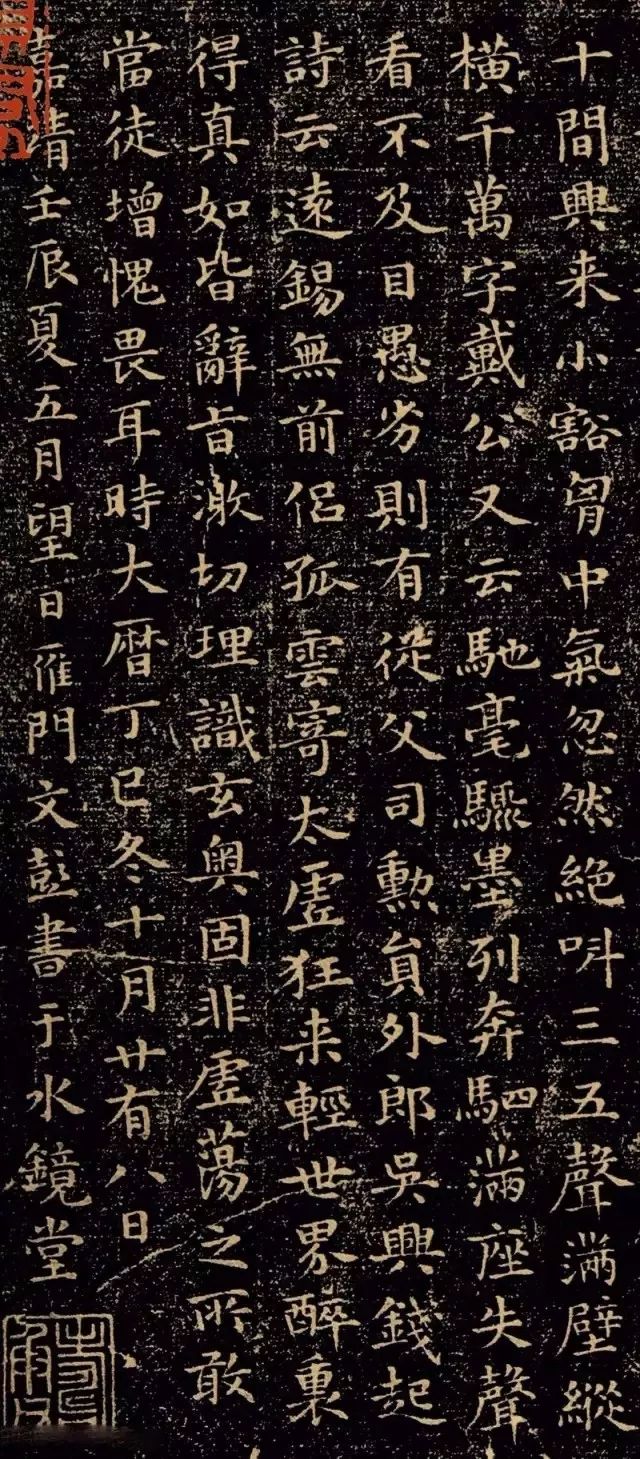 十間興来小豁胷中氣忽然絶呌三五聲滿壁縱
橫千萬字戴公又云馳毫驟墨列奔駟滿座失聲
看不及目愚劣則有從父司勲貟外郎吳興錢起
詩云遠錫無前侶孤雲寄太虛狂来輕世界醉裏
得真如皆辭旨激切理識玄奥固非虛蕩之所敢
當徒增愧畏耳時大暦丁巳冬十月廿有八日
嘉靖壬辰夏五月望日雁門文彭書于水鏡堂